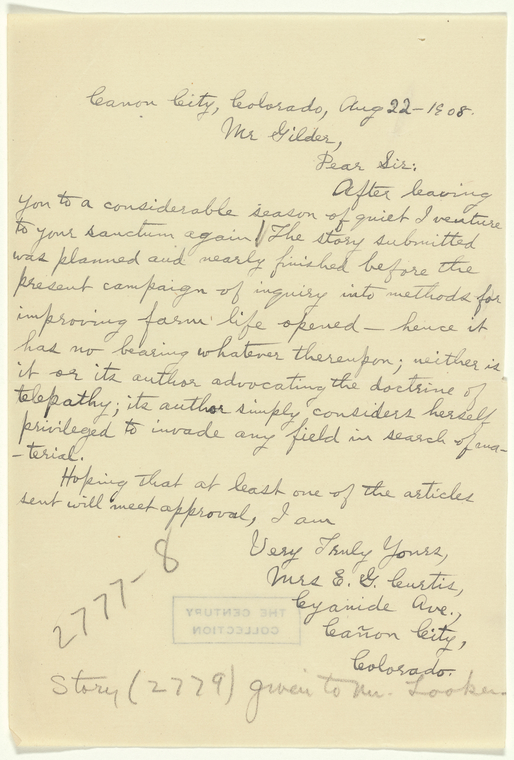 Cañon City, Colorado, Aug 22-1908.
Mr Gilder,
Dear Sir:
After leaving
you to a considerable season of quiet I venture
to your sanctum again! The story submitted
was planned and nearly finished before the
present campaign of inquiry into methods for
improving farm life opened — hence it
has no bearing whatever thereupon; neither is
it or its author advocating the doctrine of
telepathy; its author simply considers herself
privileged to invade any field in search of ma-
-terial.
Hoping that at least one of the articles
sent will meet approval, I am
Very Truly Yours,
Mrs E. G. Curtis,
Cyanide Ave.,
Cañon City,
Colorado.
2777-8
THE CENTURY
COLLECTION
Story (2779) given to Mr. Looker